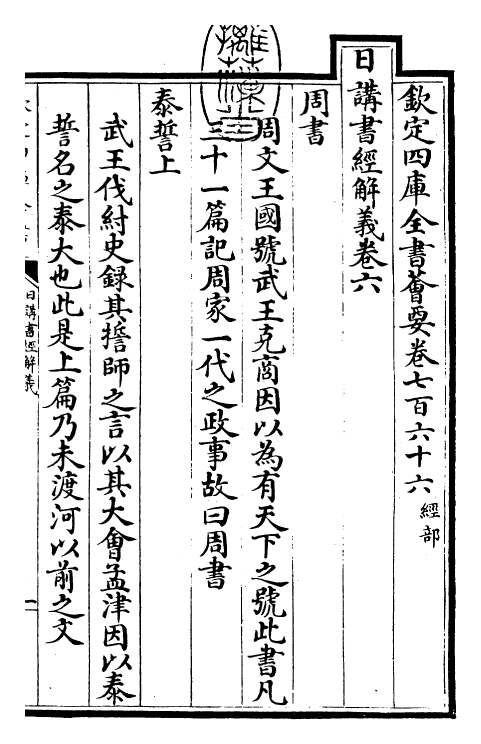 欽定四庫全書薈要卷七百六十六 經部
日講書經解義卷六
周書
周文王國號武王克商因以為有天下之號此書凡
三十一篇記周家一代之政事故曰周書
泰誓上
武王伐紂史録其誓師之言以其大會孟津因以泰
誓名之泰大也此是上篇乃未渡河以前之文
日講書經解義
一